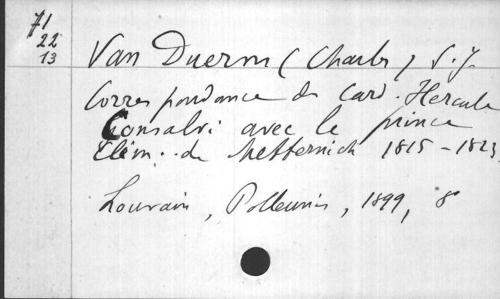 71
22
13
Van Duerm (Charles) S. J.
Correspondance du Card. Hercule
Consalvi avec le prince
Clém. de Metternich 1815-1823
Louvain, Polleunis, 1899, 8°